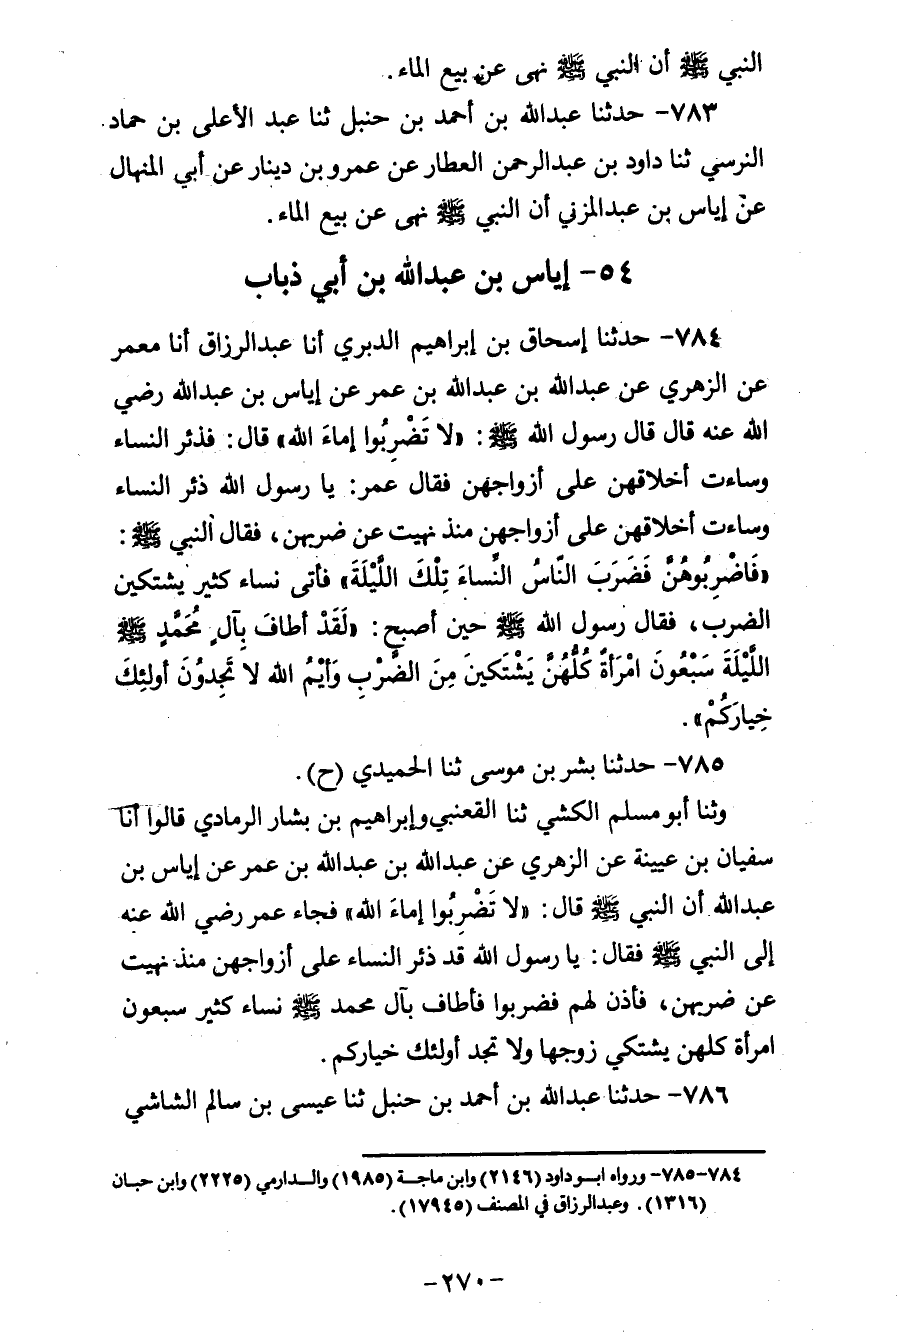 النبي ﷺ أن النبي ﷺ نهى عن بيع الماء.
٧٨٣- حدثنا عبدالله بن أحمد بن حنبل ثنا عبد الأعلى بن حماد
النرسي ثنا داود بن عبدالرحمن العطار عن عمرو بن دينار عن أبي المنهال
عن إياس بن عبدالمزني أن النبي ﷺ نهى عن بيع الماء.
٥٤- إياس بن عبدالله بن أبي ذباب
٧٨٤- حدثنا إسحاق بن إبراهيم الدبري أنا عبدالرزاق أنا معمر
عن الزهري عن عبدالله بن عبدالله بن عمر عن إياس بن عبدالله رضي
الله عنه قال قال رسول الله ﷺ: «لا تَضْرِبُوا إماءَ الله» قال: فذئر النساء
وساءت أخلاقهن على أزواجهن فقال عمر: يا رسول الله ذئر النساء
وساءت أخلاقهن على أزواجهن منذ نهيت عن ضربهن، فقال النبي ﷺ:
«فَاضْرِبُوهُنَّ فَضَرَبَ النَّاسُ النِّساءَ تِلْكَ اللَّيْلَةَ» فأتى نساء كثير يشتكين
الضرب، فقال رسول الله ﷺ حين أصبح: «لَقَدْ أطافَ بِآلِ مُحَمَّدٍ ﷺ
اللَّيْلَةَ سَبْعُونَ امْرَأةً كُلُّهُنَّ يَشْتَكينَ مِنَ الضَّرْبِ وَأيْمُ الله لا تَجِدوُنَ أولئِكَ
خِيارَكُمْ».
٧٨٥- حدثنا بشر بن موسى ثنا الحميدي (ح).
وثنا أبو مسلم الكشي ثنا القعنبي وإبراهيم بن بشار الرمادي قالوا أنا
سفيان بن عيينة عن الزهري عن عبدالله بن عبدالله بن عمر عن إياس بن
عبدالله أن النبي ﷺ قال: «لا تَضْرِبُوا إماءَ الله» فجاء عمر رضي الله عنه
إلى النبي ﷺ فقال: يا رسول الله قد ذئر النساء على أزواجهن منذ نهيت
عن ضربهن، فأذن لهم فضربوا فأطاف بآل محمد ﷺ نساء كثير سبعون
امرأة كلهن يشتكي زوجها ولا تجد أولئك خياركم.
٧٨٦- حدثنا عبدالله بن أحمد بن حنبل ثنا عيسى بن سالم الشاشي
٧٨٤-٧٨٥- ورواه ابو داود (٢١٤٦) وابن ماجة (١٩٨٥) والدارمي (٢٢٢٥) وابن حبان
(١٣١٦). وعبدالرزاق في المصنف (١٧٩٤٥).
-٢٧٠-